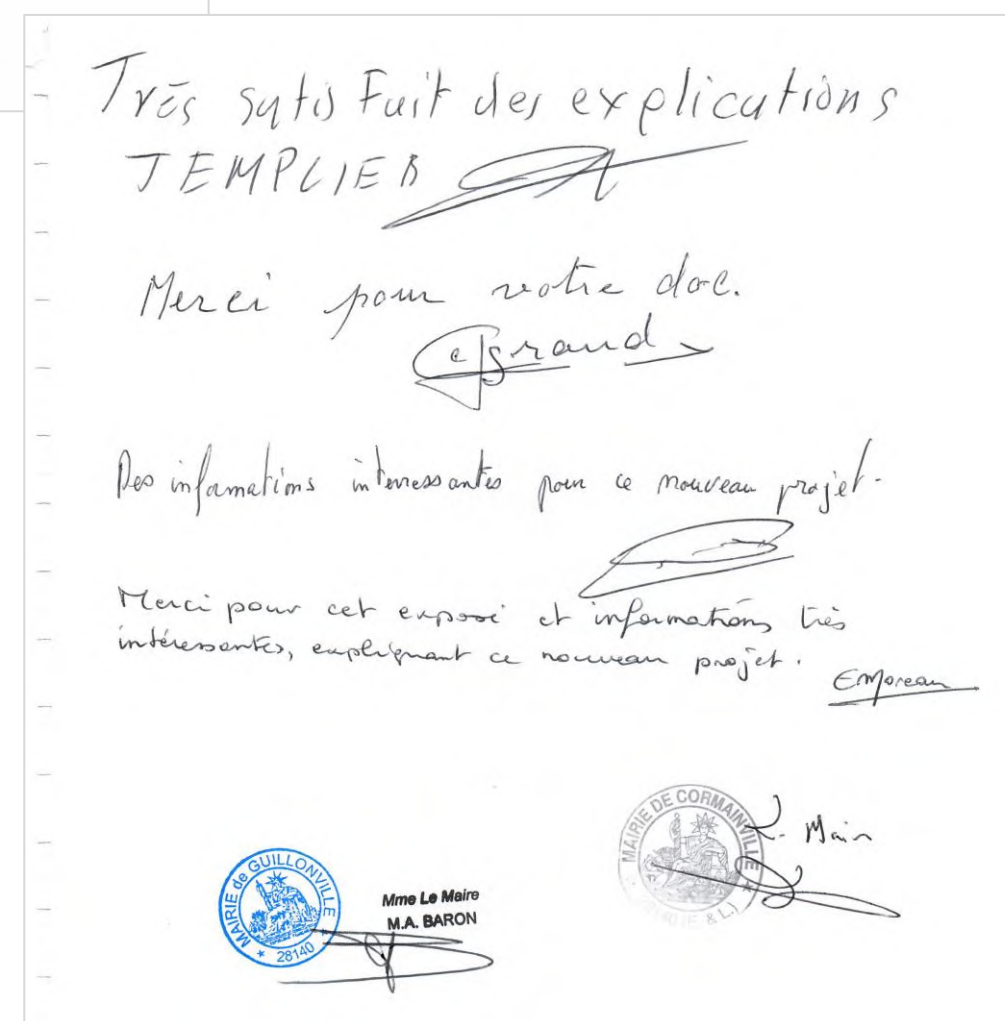 Très satisfait des explications
TEMPLIER
Merci pour votre doc.
Des informations interessantes pour ce nouveau projet.
Merci pour cet exposé et informations très
intéressantes, expliquant ce nouveau projet.
EMoreau
MAIRIE de GUILLONVILLE
* 28140 *
Mme Le Maire
M.A. BARON
MAIRIE DE CORMAINVILLE